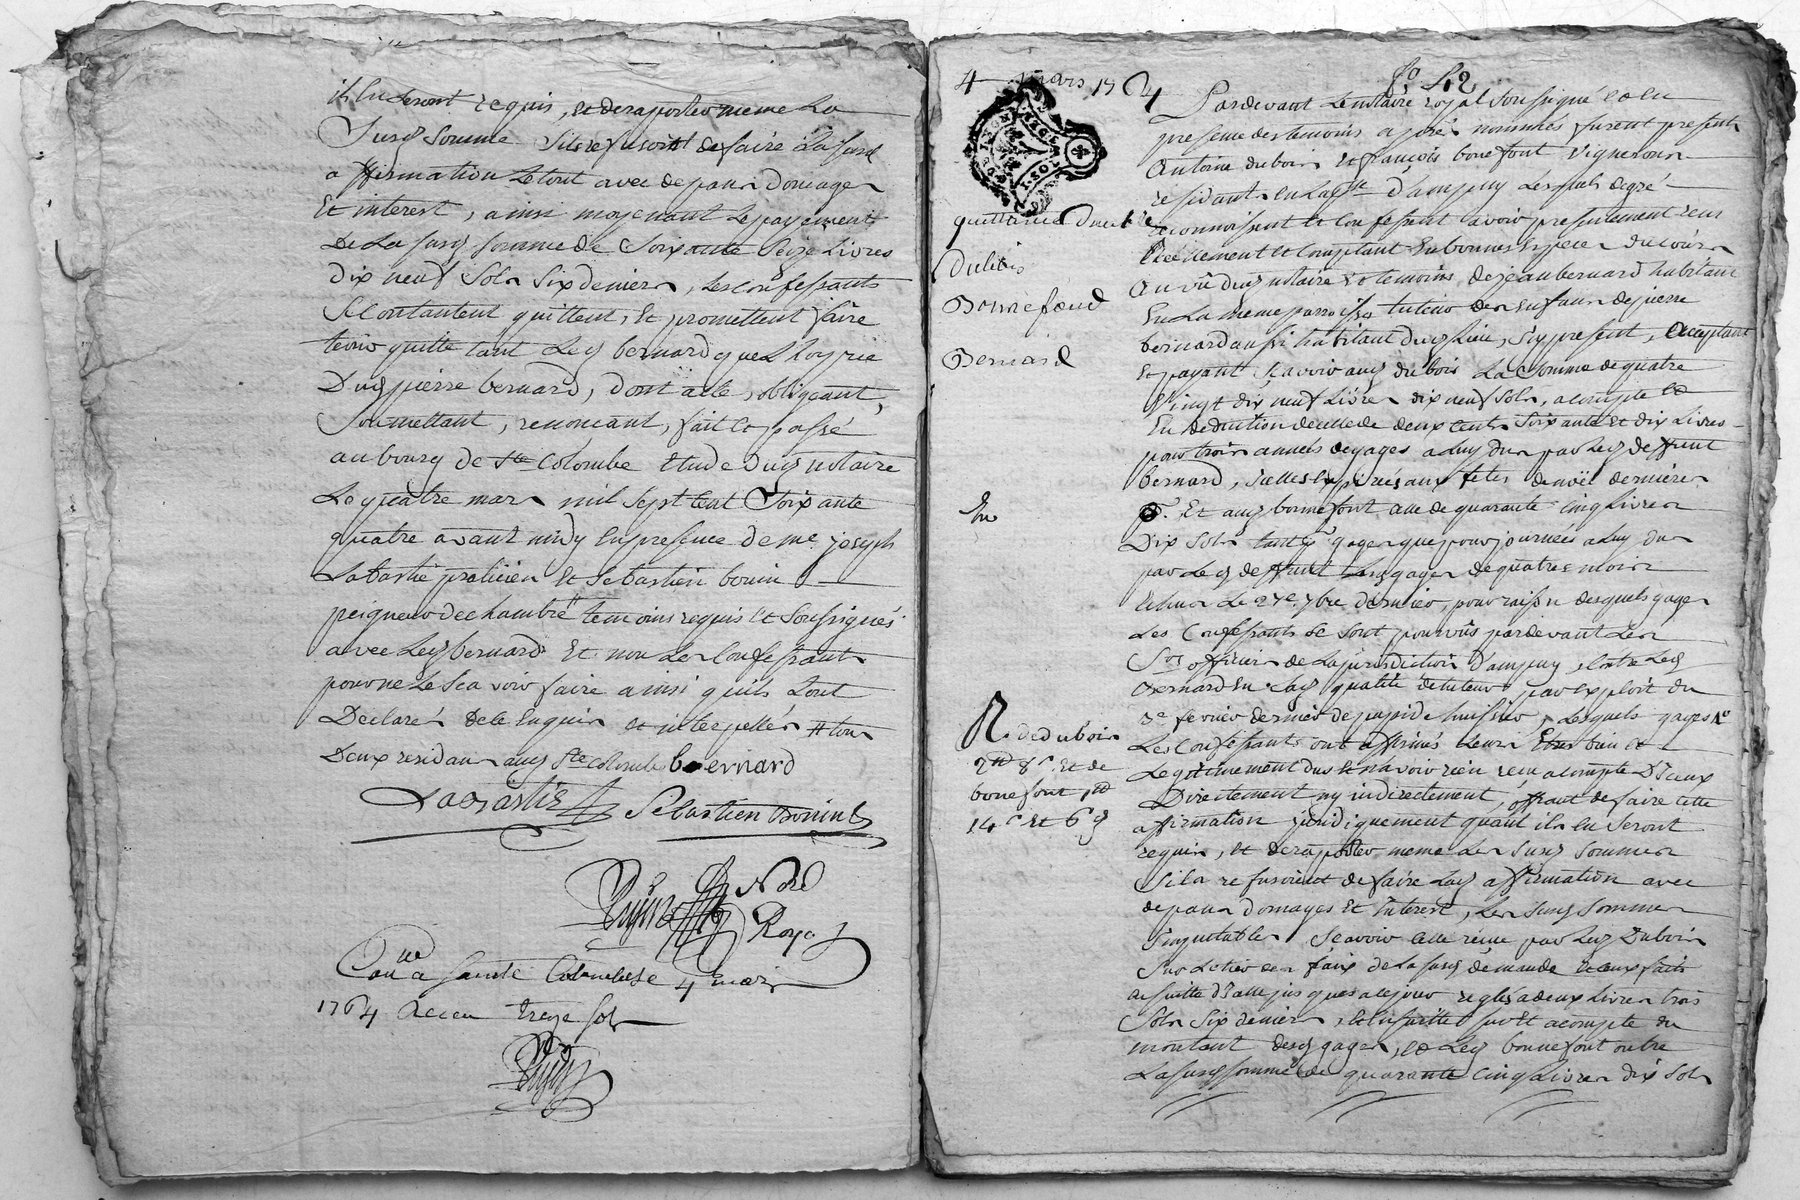 ils en seront requis, et de raporter meme la
Susd somme sils refusoint de faire lasusd
affirmation le tout avec depans Domages
Et interest, ainsi moyenant le payement
De La susd somme de Soixante Seize Livres
dix neuf Sols Six deniers, les confessants
Se contantent quittent, Et promettent faire
tenir quitte tant led bernard que l'hoyrie
Dud pierre bernard, dont acte, obligeant,
Soumettant, renonçant, fait et passé
au bourg de Ste Colombe Etude dud notaire
Le quatre mars mil sept cent Soixante
quatre avant midy En presence de me joseph
Labastie praticien Et Sebastien bonin
peigneur de chambre temoins requis et Soussignés
avec led bernard Et non les Confessants
pour ne le Scavoir faire ainsi quils l'ont
Declaré de ce Enquis et interpellés # tous
Deux residans aud Ste Colombe bernard
Labastie Sebastien Bonin
Nore
Royal
Conlle a Sainte Colombe le 4 mars
1764 Receu treze sols
4 mars 1764
fo 52
Pardevant Le notaire royal Soussigné et en
presence des temoins apres nommés furent presents
Antoine dubois Et françois bonefont Vignerons
residants en la psse d'ampuy Lesquels de gré
reconnoissent Et Confessent avoir presentement reçu
réellement Et Comptant En bonnes Especes du cours
Au vû dud notaire et temoins, de jean bernard habitant
En La meme parroisse tuteur des enfans de pierre
bernard aussi habitant dud lieu, Icy present, acceptant
Et payant Scavoir aud dubois La Somme de quatre
Vingt dix neuf Livres dix neuf Sols, a compte et
En deduction de celle de deux cents Soixante Et dix Livres
pour trois années de gages a luy dus par led deffunt
Bernard, icelles Expirées aux fêtes de noël dernieres
Et aud bonnefont celle de quarante cinq Livres
Dix Sols tant pr gages que pour journées a luy dus
par led deffunt Lesd gages de quatre mois
Echus Le 27e 7bre dernier, pour raison desquels gages
Les Confessants Se Sont pourvûs pardevant Les
Srs officiers de la jurisdiction d'ampuy, contre led
Bernard En lad qualité de tuteur par exploit du
3e fevrier dernier de papi de huissier, Lesquels gages
Les Confessants ont affirmés leurs Etres bien et
Legitimement dus Et n'avoir rien reçu a compte D'Iceux
Directement ny indirectement, offrant de faire cette
affirmation juridiquement quant ils en Seront
requis, et de raporter meme les Susd Sommes
Sils refusoient de faire lad affirmation avec
depans domages Et Interest, les susd Sommes
Imputables Scavoir celle reçue par led Dubois
Sur Le tiers des fraix de la susd demande et ceux faits
En Suitte D'Icelle jusques a ce jour reglés a deux Livres trois
Sols Six deniers, Et En suitte sur Et a compte du
montant desd gages, et led bonnefont outre
La susd somme de quarante cinq Livres dix Sols
quittance
dubois
Bonnefond
Bernard
R. de dubois
8s. Et de
bonefont
14s Et 6d